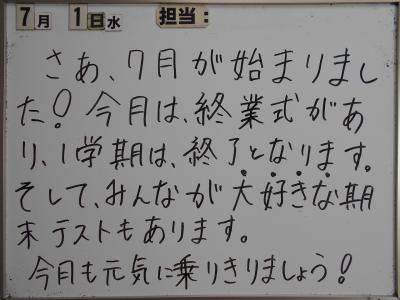 7月 1日水 担当:
さあ、7月が始まりまし
た!今月は、終業式があ
り、1学期は、終了となります。
そして、みんなが大好きな期
末テストもあります。
今月も元気に乗りきりましょう!